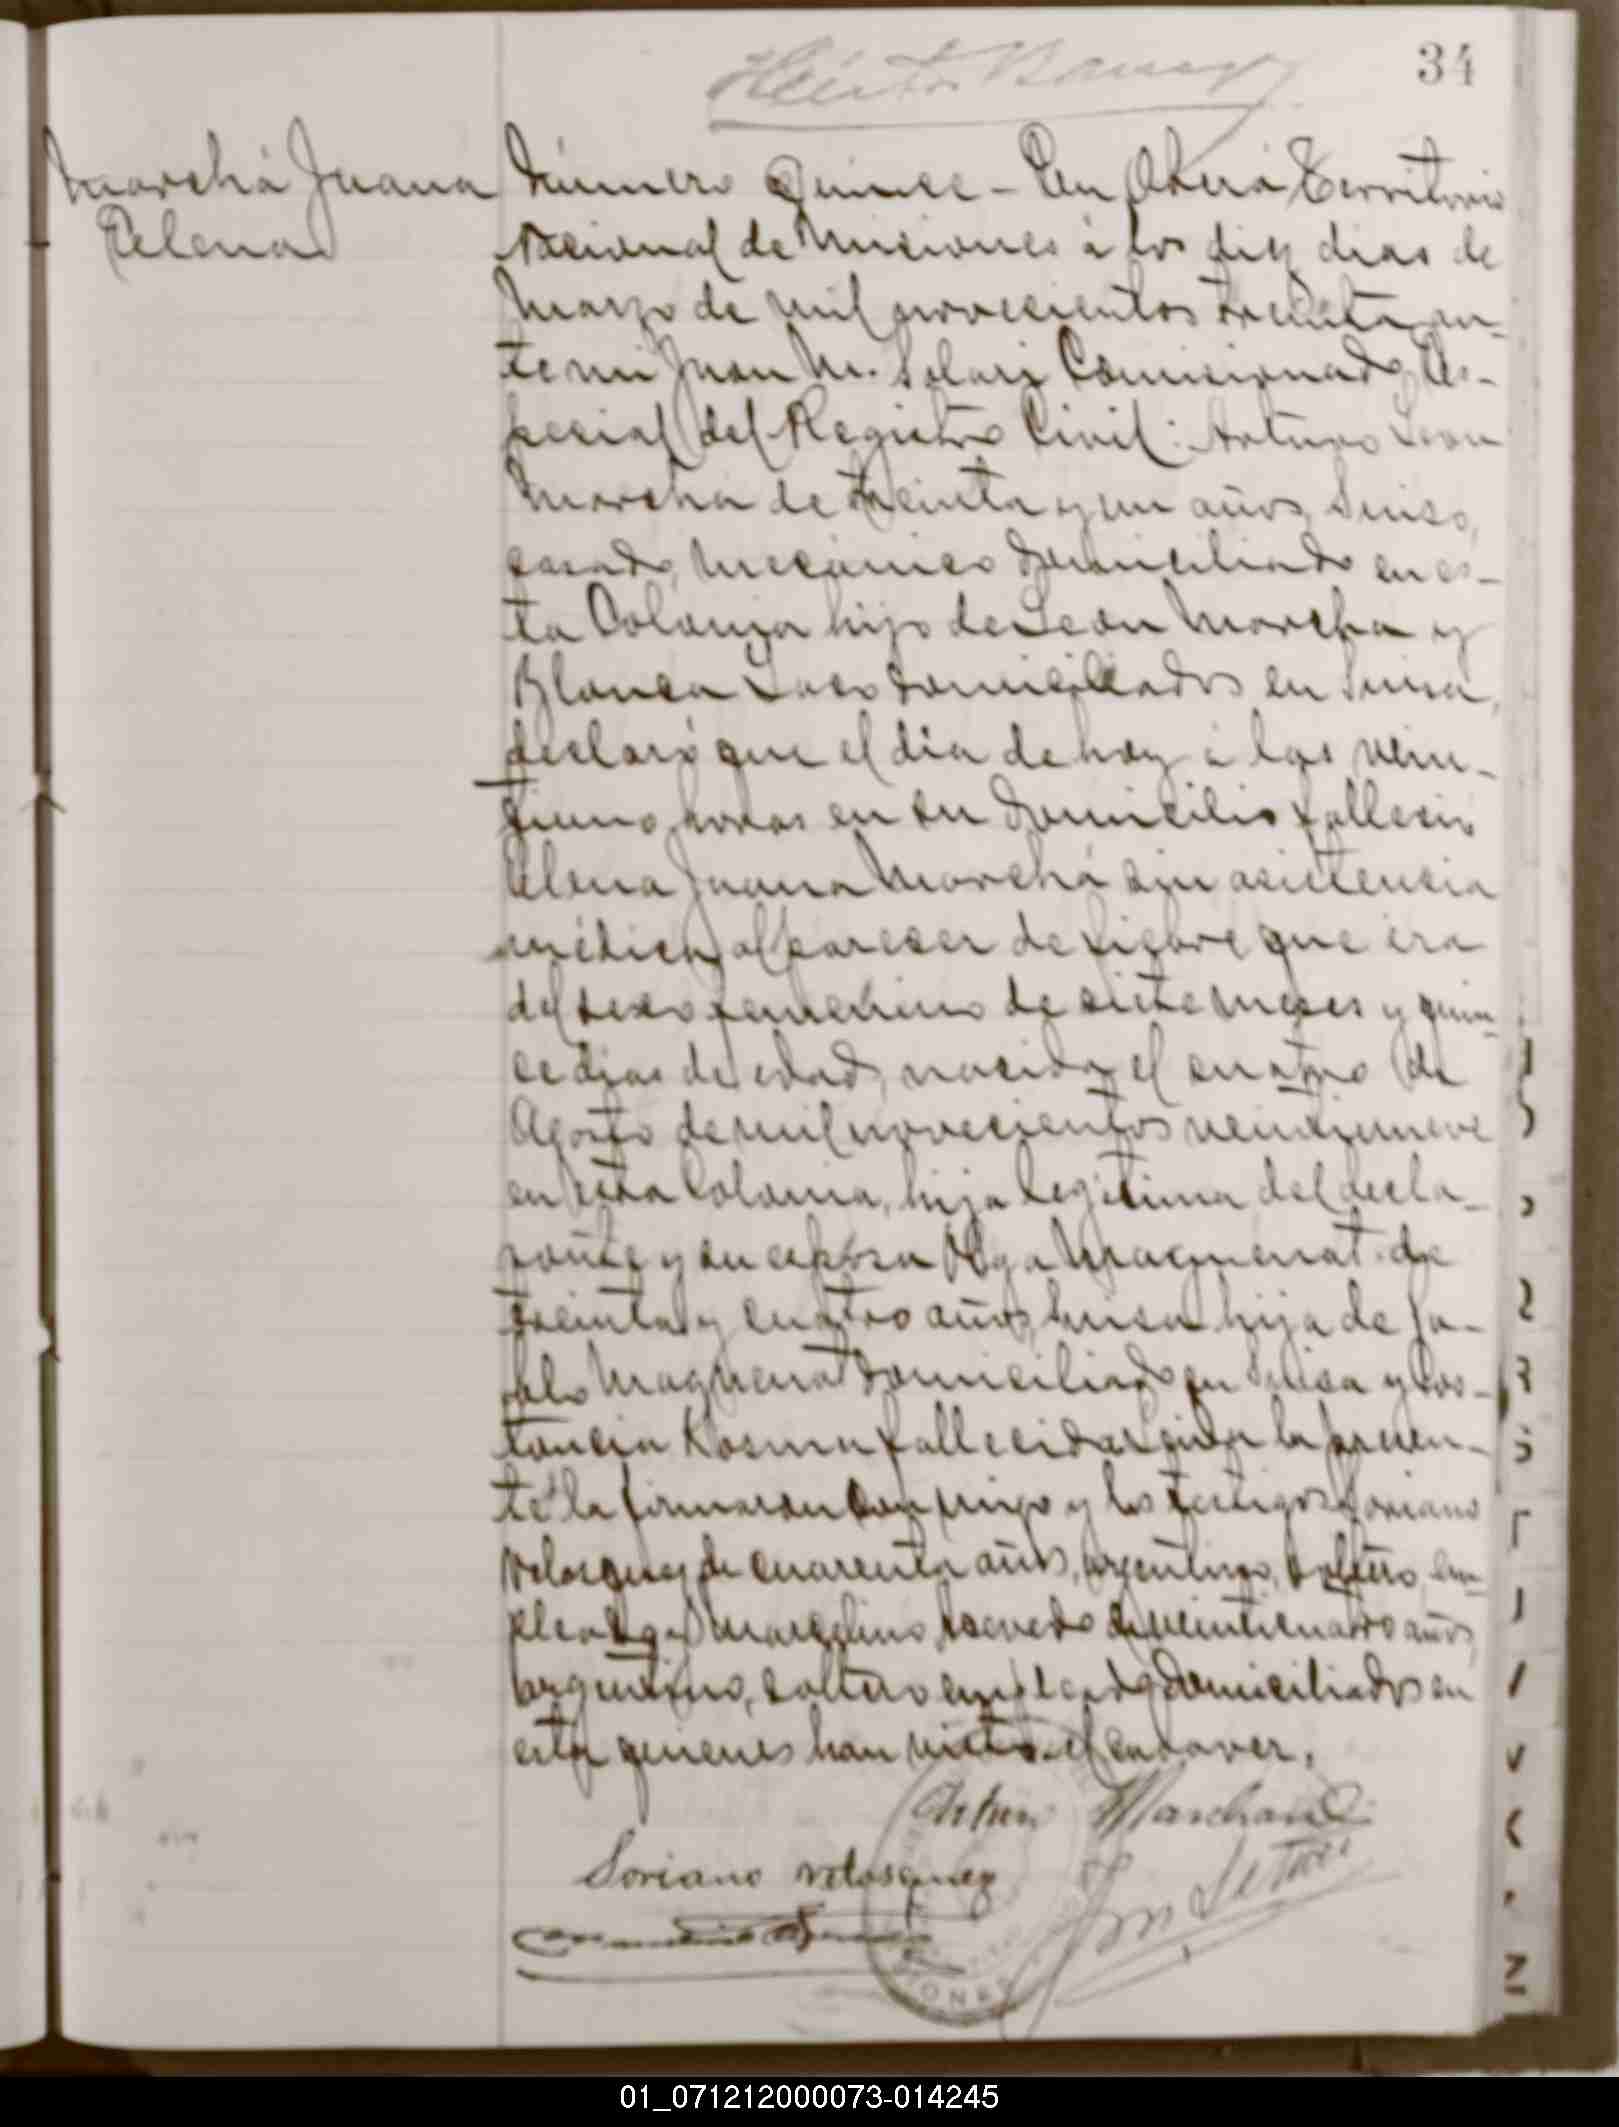 34
Marchá Juana
Elena
Número Quince - En Oberá Territorio
Nacional de Misiones á los diez dias de
Marzo de mil novecientos treinta an-
te mi Juan M. Solari Comisionado Es-
pecial del Registro Civil: Arturo Leon
Marcha de treinta y un años, Suiso,
casado, mecánico domiciliado en es-
ta Colonia hijo de Leon Marcha y
Blanca domiciliados en Suisa,
declaró que el dia de hoy á las vein-
tiuno horas en su domicilio falleció
Elena Juana Marchá sin asistencia
médica, al parecer de fiebre que era
del sexo femenino de siete meses y quin-
ce dias de edad, nacida el cuatro de
Agosto de mil novecientos veintinueve
en esta Colonia, hija legitima del decla-
rante y su esposa Olga Magnenat de
treinta y cuatro años, suisa hija de Ja-
Magnenat domiciliado en Suisa y Cos-
tancia fallecida. Leida la presen-
te la firmaron conmigo y los testigos Soriano
Velasquez de cuarenta años, argentino, soltero, em-
pleado y Marcelino Acevedo de veinticuatro años,
argentino, soltero empleado domiciliados en
esta quienes han visto el cadaver.
Arturo Marchand
Soriano Velasquez
01_071212000073-014245